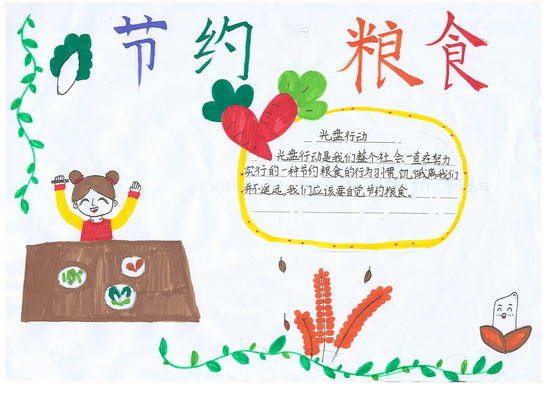 节约粮食
光盘行动
光盘行动是我们整个社会一直在努力
实行的一种节约粮食的行为习惯,饥饿离我们
并不遥远,我们应该要自觉节约粮食。